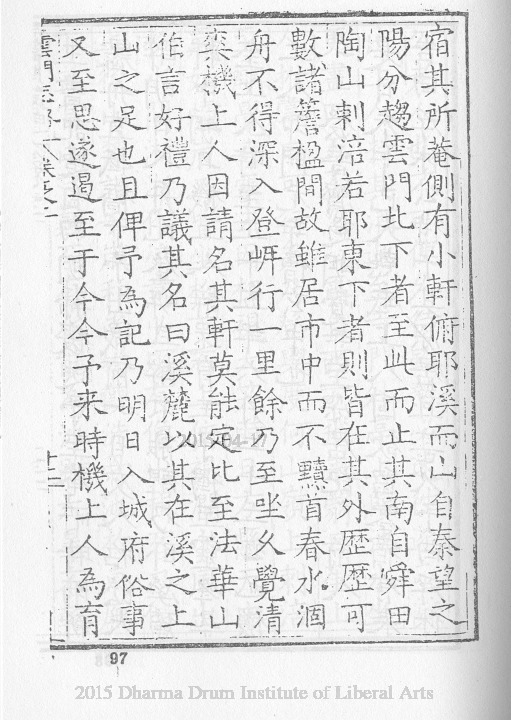 宿其所菴側有小軒俯耶溪而山自秦望之
陽分趨雲門北下者至此而止其南自舜田
陶山剌涪若耶東下者則皆在其外歷歷可
數諸簷楹間故雖居市中而不黷首春水涸
舟不得深入登岍行一里餘乃至坐久覺清
奕機上人因請名其軒莫能定比至法華山
伯言好禮乃議其名曰溪麓以其在溪之上
山之足也且俾予為記乃明日入城府俗事
又至思遂遏至于今今予来時機上人為育
雲門志略 卷之 十二
97
2015-04-17
2015 Dharma Drum Institute of Liberal Arts